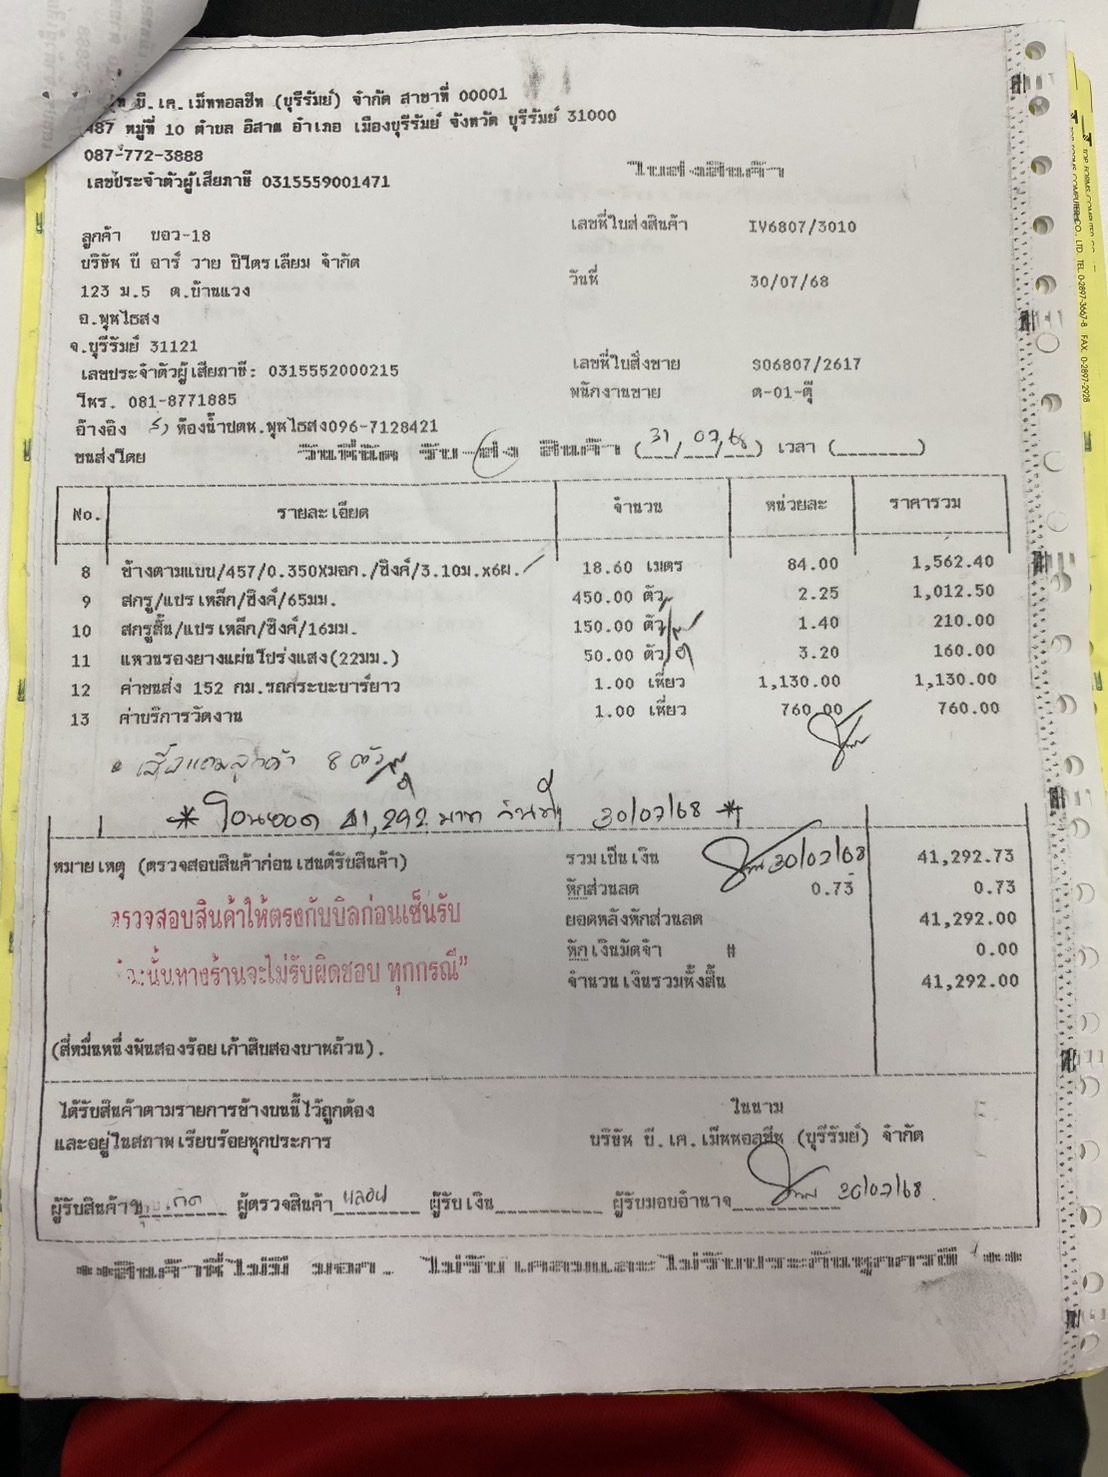 บี.เค.เม็ททอลชีท (บุรีรัมย์) จำกัด สาขาที่ 00001
487 หมู่ที่ 10 ตำบล อิสาณ อำเภอ เมืองบุรีรัมย์ จังหวัด บุรีรัมย์ 31000
087-772-3888
เลขประจำตัวผู้เสียภาษี 0315559001471
ใบส่งสินค้า
ลูกค้า ขอว-18
เลขที่ใบส่งสินค้า IV6807/3010
บริษัท บี อาร์ วาย ปิโตรเลียม จำกัด
วันที่ 30/07/68
123 ม.5 ต.บ้านแวง
อ.พุทไธสง
จ.บุรีรัมย์ 31121
เลขที่ใบสั่งขาย SO6807/2617
เลขประจำตัวผู้เสียภาษี: 0315552000215
พนักงานขาย ด-01-ตุ๊
โทร. 081-8771885
อ้างอิง ห้องน้ำปตท.พุทไธสง096-7128421
ขนส่งโดย วันที่นัด รับ-ส่ง สินค้า (31/07/68) เวลา (________)
No. รายละเอียด จำนวน หน่วยละ ราคารวม
8 ข้างตามแบบ/457/0.350Xมอก./ซิงค์/3.10ม.x6ผ. 18.60 เมตร 84.00 1,562.40
9 สกรู/แปเหล็ก/ซิงค์/65มม. 450.00 ตัว 2.25 1,012.50
10 สกรูสั้น/แปเหล็ก/ซิงค์/16มม. 150.00 ตัว 1.40 210.00
11 แหวนรองยางแผ่นโปร่งแสง(22มม.) 50.00 ตัว 3.20 160.00
12 ค่าขนส่ง 152 กม.รถกระบะบาร์ยาว 1.00 เที่ยว 1,130.00 1,130.00
13 ค่าบริการวัดงาน 1.00 เที่ยว 760.00 760.00
8 ตัว
* โอนยอด 41,292 บาท วันที่ 30/07/68 *
หมายเหตุ (ตรวจสอบสินค้าก่อนเซนต์รับสินค้า) รวมเป็นเงิน 30/07/68 41,292.73
หักส่วนลด 0.73 0.73
ตรวจสอบสินค้าให้ตรงกับบิลก่อนเซ็นรับ
ยอดหลังหักส่วนลด 41,292.00
หักเงินมัดจำ # 0.00
นั้นทางร้านจะไม่รับผิดชอบ ทุกกรณี"
จำนวนเงินรวมทั้งสิ้น 41,292.00
(สี่หมื่นหนึ่งพันสองร้อยเก้าสิบสองบาทถ้วน).
ได้รับสินค้าตามรายการข้างบนนี้ไว้ถูกต้อง ในนาม
และอยู่ในสภาพเรียบร้อยทุกประการ บริษัท บี.เค.เม็ททอลชีท (บุรีรัมย์) จำกัด
ผู้รับสินค้า ผู้ตรวจสินค้า ผู้รับเงิน____________ ผู้รับมอบอำนาจ 30/07/68
**สินค้าที่ไม่มี มอก. ไม่รับเคลมและไม่รับประกันทุกกรณี **
TOP FORMS COMPUTER CO., LTD. TEL. 0-2897-3667-8 FAX. 0-2897-2928